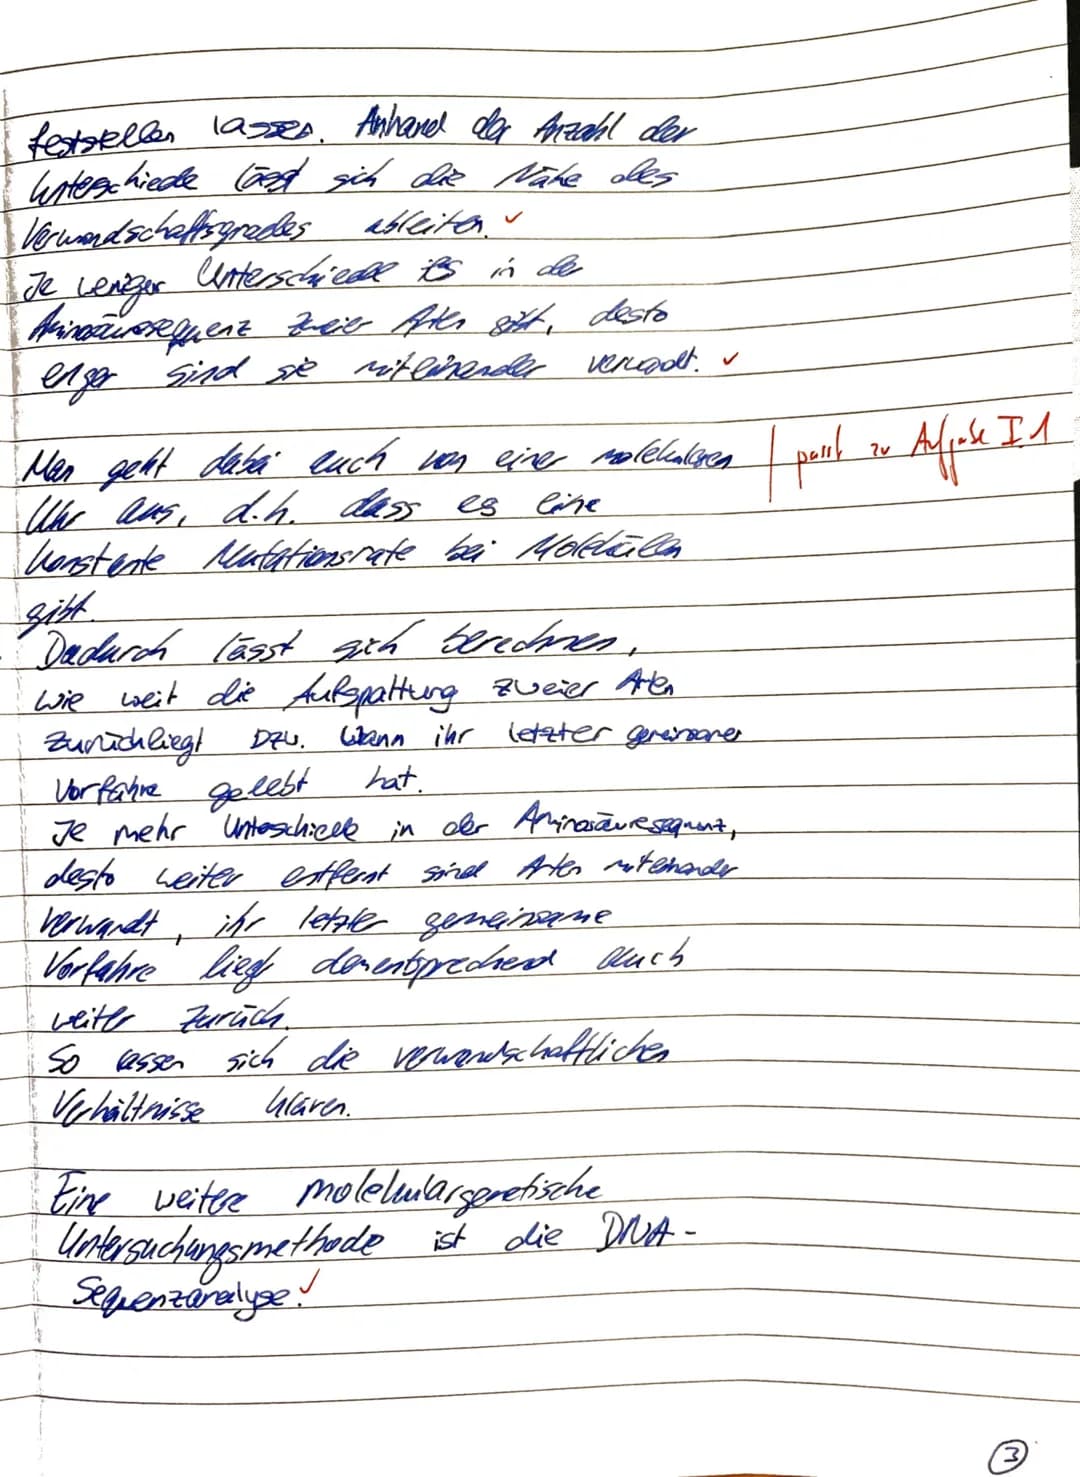 feststellen lassen. Anhand der Anzahl der
Unterschiede lässt sich die Nähe des
Verwandschaftsgrades ableiten. ✓
Je weniger Unterschiede es in der
Aminosäuresequenz zweier Arten gibt, desto
enger sind sie miteinander verwandt. ✓
Man geht dabei auch von einer molekularen | passt zu Aufgabe I 1
Uhr aus, d.h. dass es eine
konstante Mutationsrate bei Molekülen
gibt.
Dadurch lässt sich berechnen,
wie weit die Aufspaltung zweier Arten
zurückliegt bzw. wann ihr letzter gemeinsamer
Vorfahre gelebt hat.
Je mehr Unterschiede in der Aminosäuresequenz,
desto weiter entfernt sind Arten miteinander
verwandt, ihr letzter gemeinsame
Vorfahre liegt dementsprechend auch
weiter zurück.
So lassen sich die verwandschaftlichen
Verhältnisse klären.
Eine weitere molekulargenetische
Untersuchungsmethode ist die DNA-
Sequenzanalyse. ✓
3